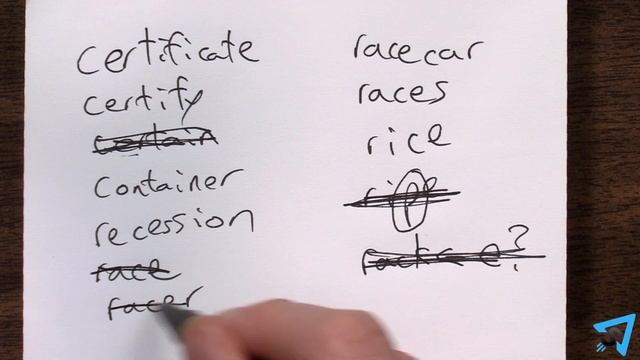 certificate
certify
certain
container
recession
face
facer
racecar
races
rice
ripe